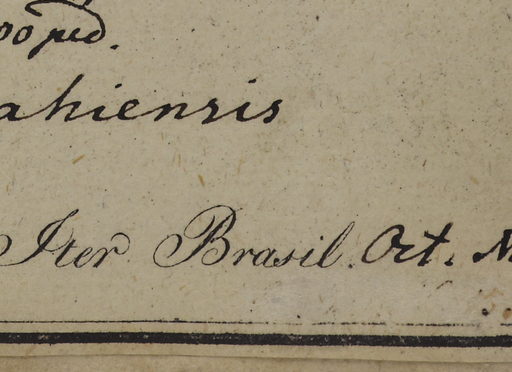 00 ped.
ahiensis
Iter Brasil. Oct. M